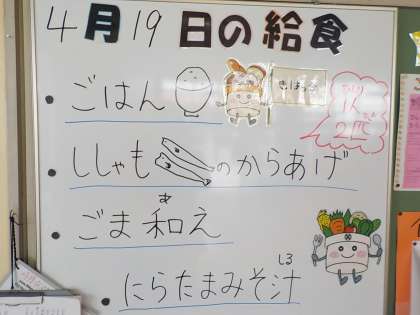 4月19日の給食
・ごはん
・ししゃものからあげ
・ごま和え
あ
・にらたまみそ汁
しる